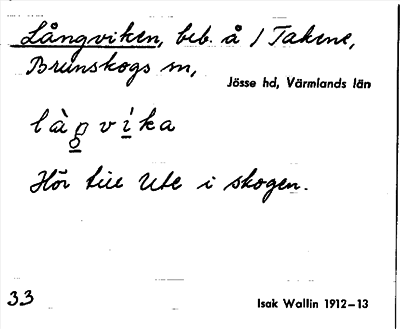 Långviken, beb. å / Takene,
Brunskogs sn,
Jösse hd, Värmlands län
Hör till Ute i skogen.
33
Isak Wallin 1912–13